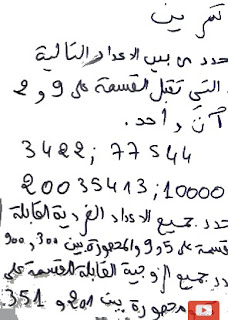 تمرين
حدد من بين الاعداد التالية
التي تقبل القسمة على 9 و 2
آن واحد.
3422; 77544
20035413; 10000
حدد جميع الاعداد الفردية القابلة
قسمة على 5 و 9 والمحصورة بين 300 و 900
دد جميع الزوجية القابلة للقسمة على
محصورة بين 201 و 351